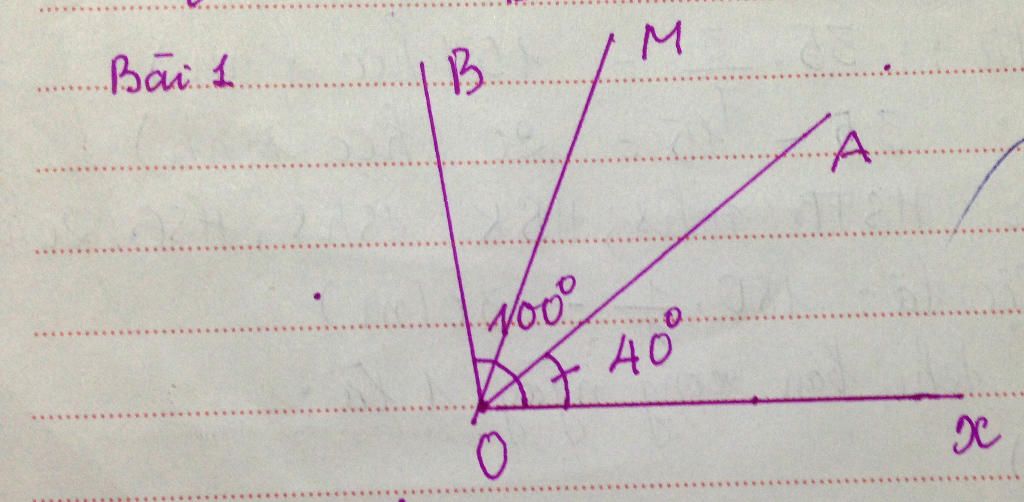 Bài 1
B
M
A
100°
40°
O
x